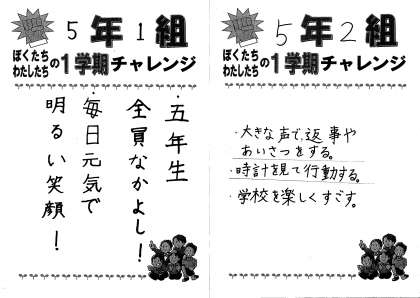 5年1組
ぼくたち
わたしたち
の1学期チャレンジ
・五年生
全員なかよし!
・毎日元気で
明るい笑顔!
5年2組
ぼくたち
わたしたち
の1学期チャレンジ
・大きな声で、返事や
あいさつをする。
・時計を見て行動する。
・学校を楽しくすごす。